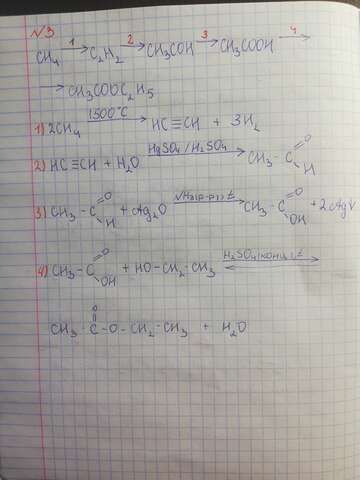 №3
CH₄ 1→ C₂H₂ 2→ CH₃COH 3→ CH₃COOH 4→
→ CH₃COOC₂H₅
1) 2CH₄ 1500°C→ HC≡CH + 3H₂
2) HC≡CH + H₂O HgSO₄/H₂SO₄→ CH₃-C=O H
3) CH₃-C=O H + Ag₂O NH₃(р-р), t→ CH₃-C=O OH + 2Ag↓
4) CH₃-C=O OH + HO-CH₂-CH₃ H₂SO₄(конц.), t⇄
CH₃-C(=O)-O-CH₂-CH₃ + H₂O